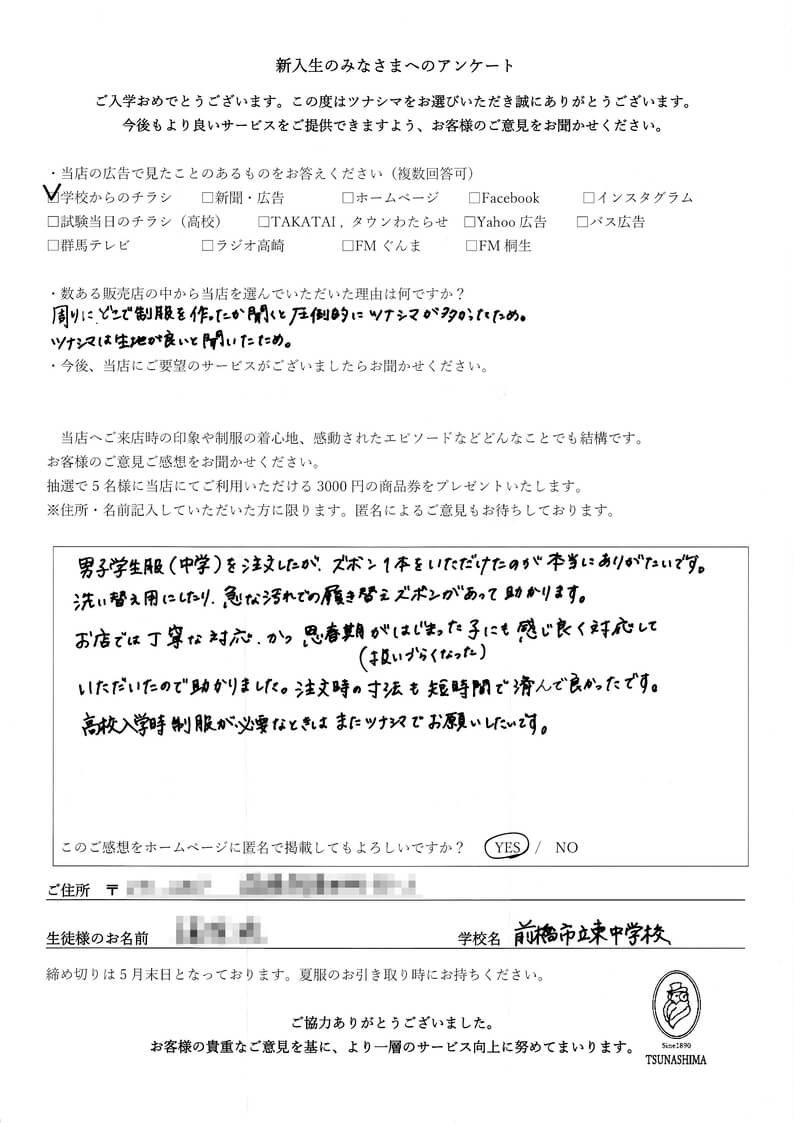 新入生のみなさまへのアンケート
ご入学おめでとうございます。この度はツナシマをお選びいただき誠にありがとうございます。
今後もより良いサービスをご提供できますよう、お客様のご意見をお聞かせください。
・当店の広告で見たことのあるものをお答えください（複数回答可）
☑学校からのチラシ □新聞・広告 □ホームページ □Facebook □インスタグラム
□試験当日のチラシ（高校） □TAKATAI , タウンわたらせ □Yahoo 広告 □バス広告
□群馬テレビ □ラジオ高崎 □FM ぐんま □FM 桐生
・数ある販売店の中から当店を選んでいただいた理由は何ですか？
周りに、どこで制服を作ったか聞くと圧倒的にツナシマが多かったため。
ツナシマは生地が良いと聞いたため。
・今後、当店にご要望のサービスがございましたらお聞かせください。
当店へご来店時の印象や制服の着心地、感動されたエピソードなどどんなことでも結構です。
お客様のご意見ご感想をお聞かせください。
抽選で 5 名様に当店にてご利用いただける 3000 円の商品券をプレゼントいたします。
※住所・名前記入していただいた方に限ります。匿名によるご意見もお待ちしております。
男子学生服（中学）を注文したが、ズボン1本をいただけたのが本当にありがたいです。
洗い替え用にしたり、急な汚れでの履き替えズボンがあって助かります。
お店では丁寧な対応、かつ思春期がはじまった子にも感じ良く対応して
（扱いづらくなった）
いただいたので助かりました。注文時の寸法も短時間で済んで良かったです。
高校入学時制服が必要なときはまたツナシマでお願いしたいです。
このご感想をホームページに匿名で掲載してもよろしいですか？ YES / NO
ご住所 〒
生徒様のお名前 学校名 前橋市立東中学校
締め切りは 5 月末日となっております。夏服のお引き取り時にお持ちください。
ご協力ありがとうございました。
お客様の貴重なご意見を基に、より一層のサービス向上に努めてまいります。
Sine1890
TSUNASHIMA